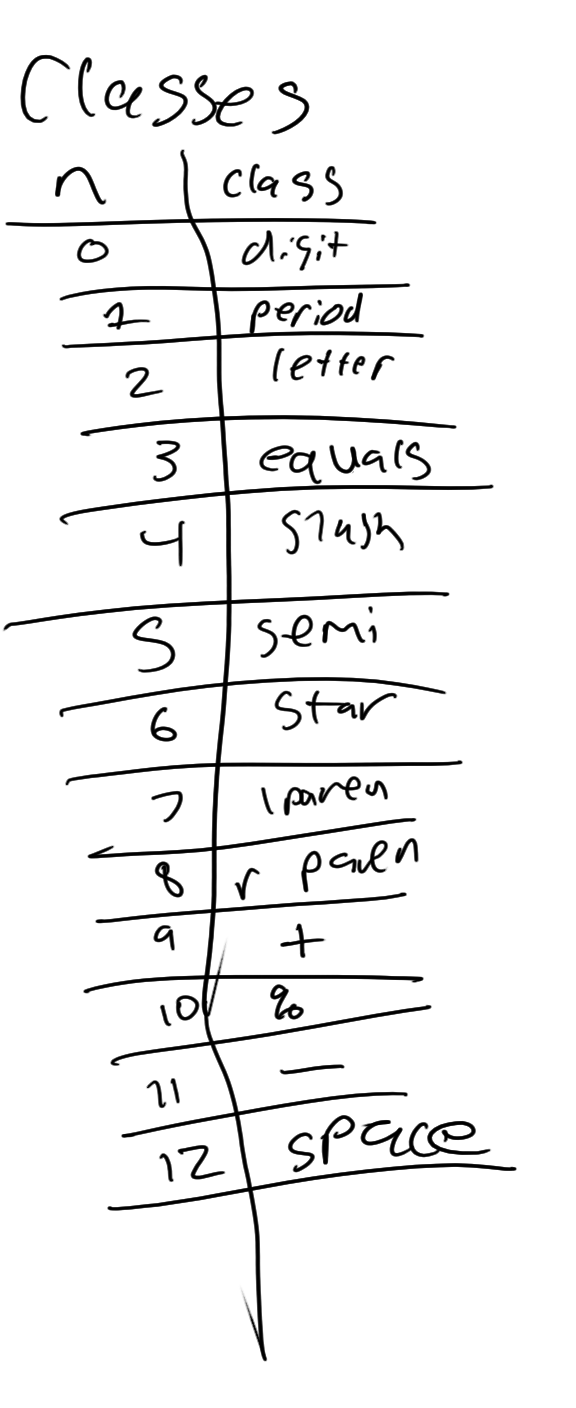 Classes
n class
0 digit
1 period
2 letter
3 equals
4 slash
5 semi
6 star
7 lparen
8 r paren
9 +
10 %
11 —
12 space